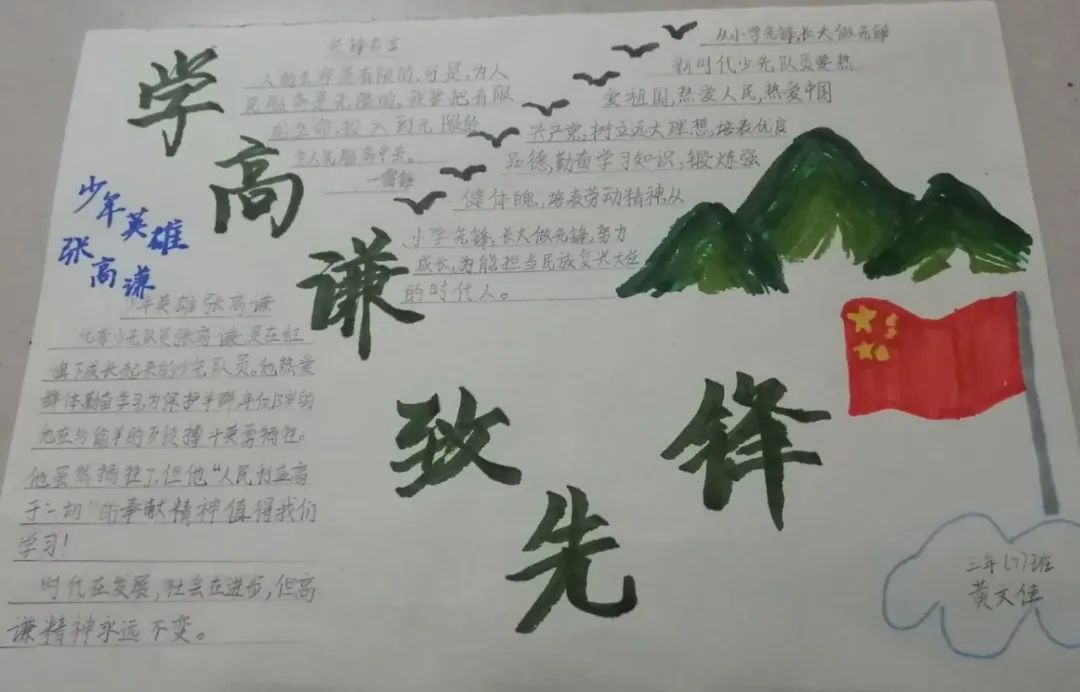 学高谦致先锋
少年英雄
张高谦
先锋名言
人的生命是有限的,可是,为人
民服务是无限的,我要把有限
的生命,投入到无限的
为人民服务中去。
—雷锋
从小学先锋,长大做先锋
新时代少先队员要热
爱祖国,热爱人民,热爱中国
共产党,树立远大理想,培养优良
品德,勤奋学习知识,锻炼强
健体魄,培养劳动精神从
小学先锋,长大做先锋,努力
成长,为能担当民族复兴大任
的时代人。
少年英雄张高谦
优秀少先队员张高谦,是在红
旗下成长起来的少先队员。他热爱
群体勤奋学习为保护羊群,年仅的
他在与偷羊的歹徒搏斗英勇牺牲。
他虽然牺牲了,但他“人民利益高
于一切”的奉献精神值得我们
学习!
时代在发展,社会在进步,但高
谦精神永远不变。
三年(7)班
黄文佳